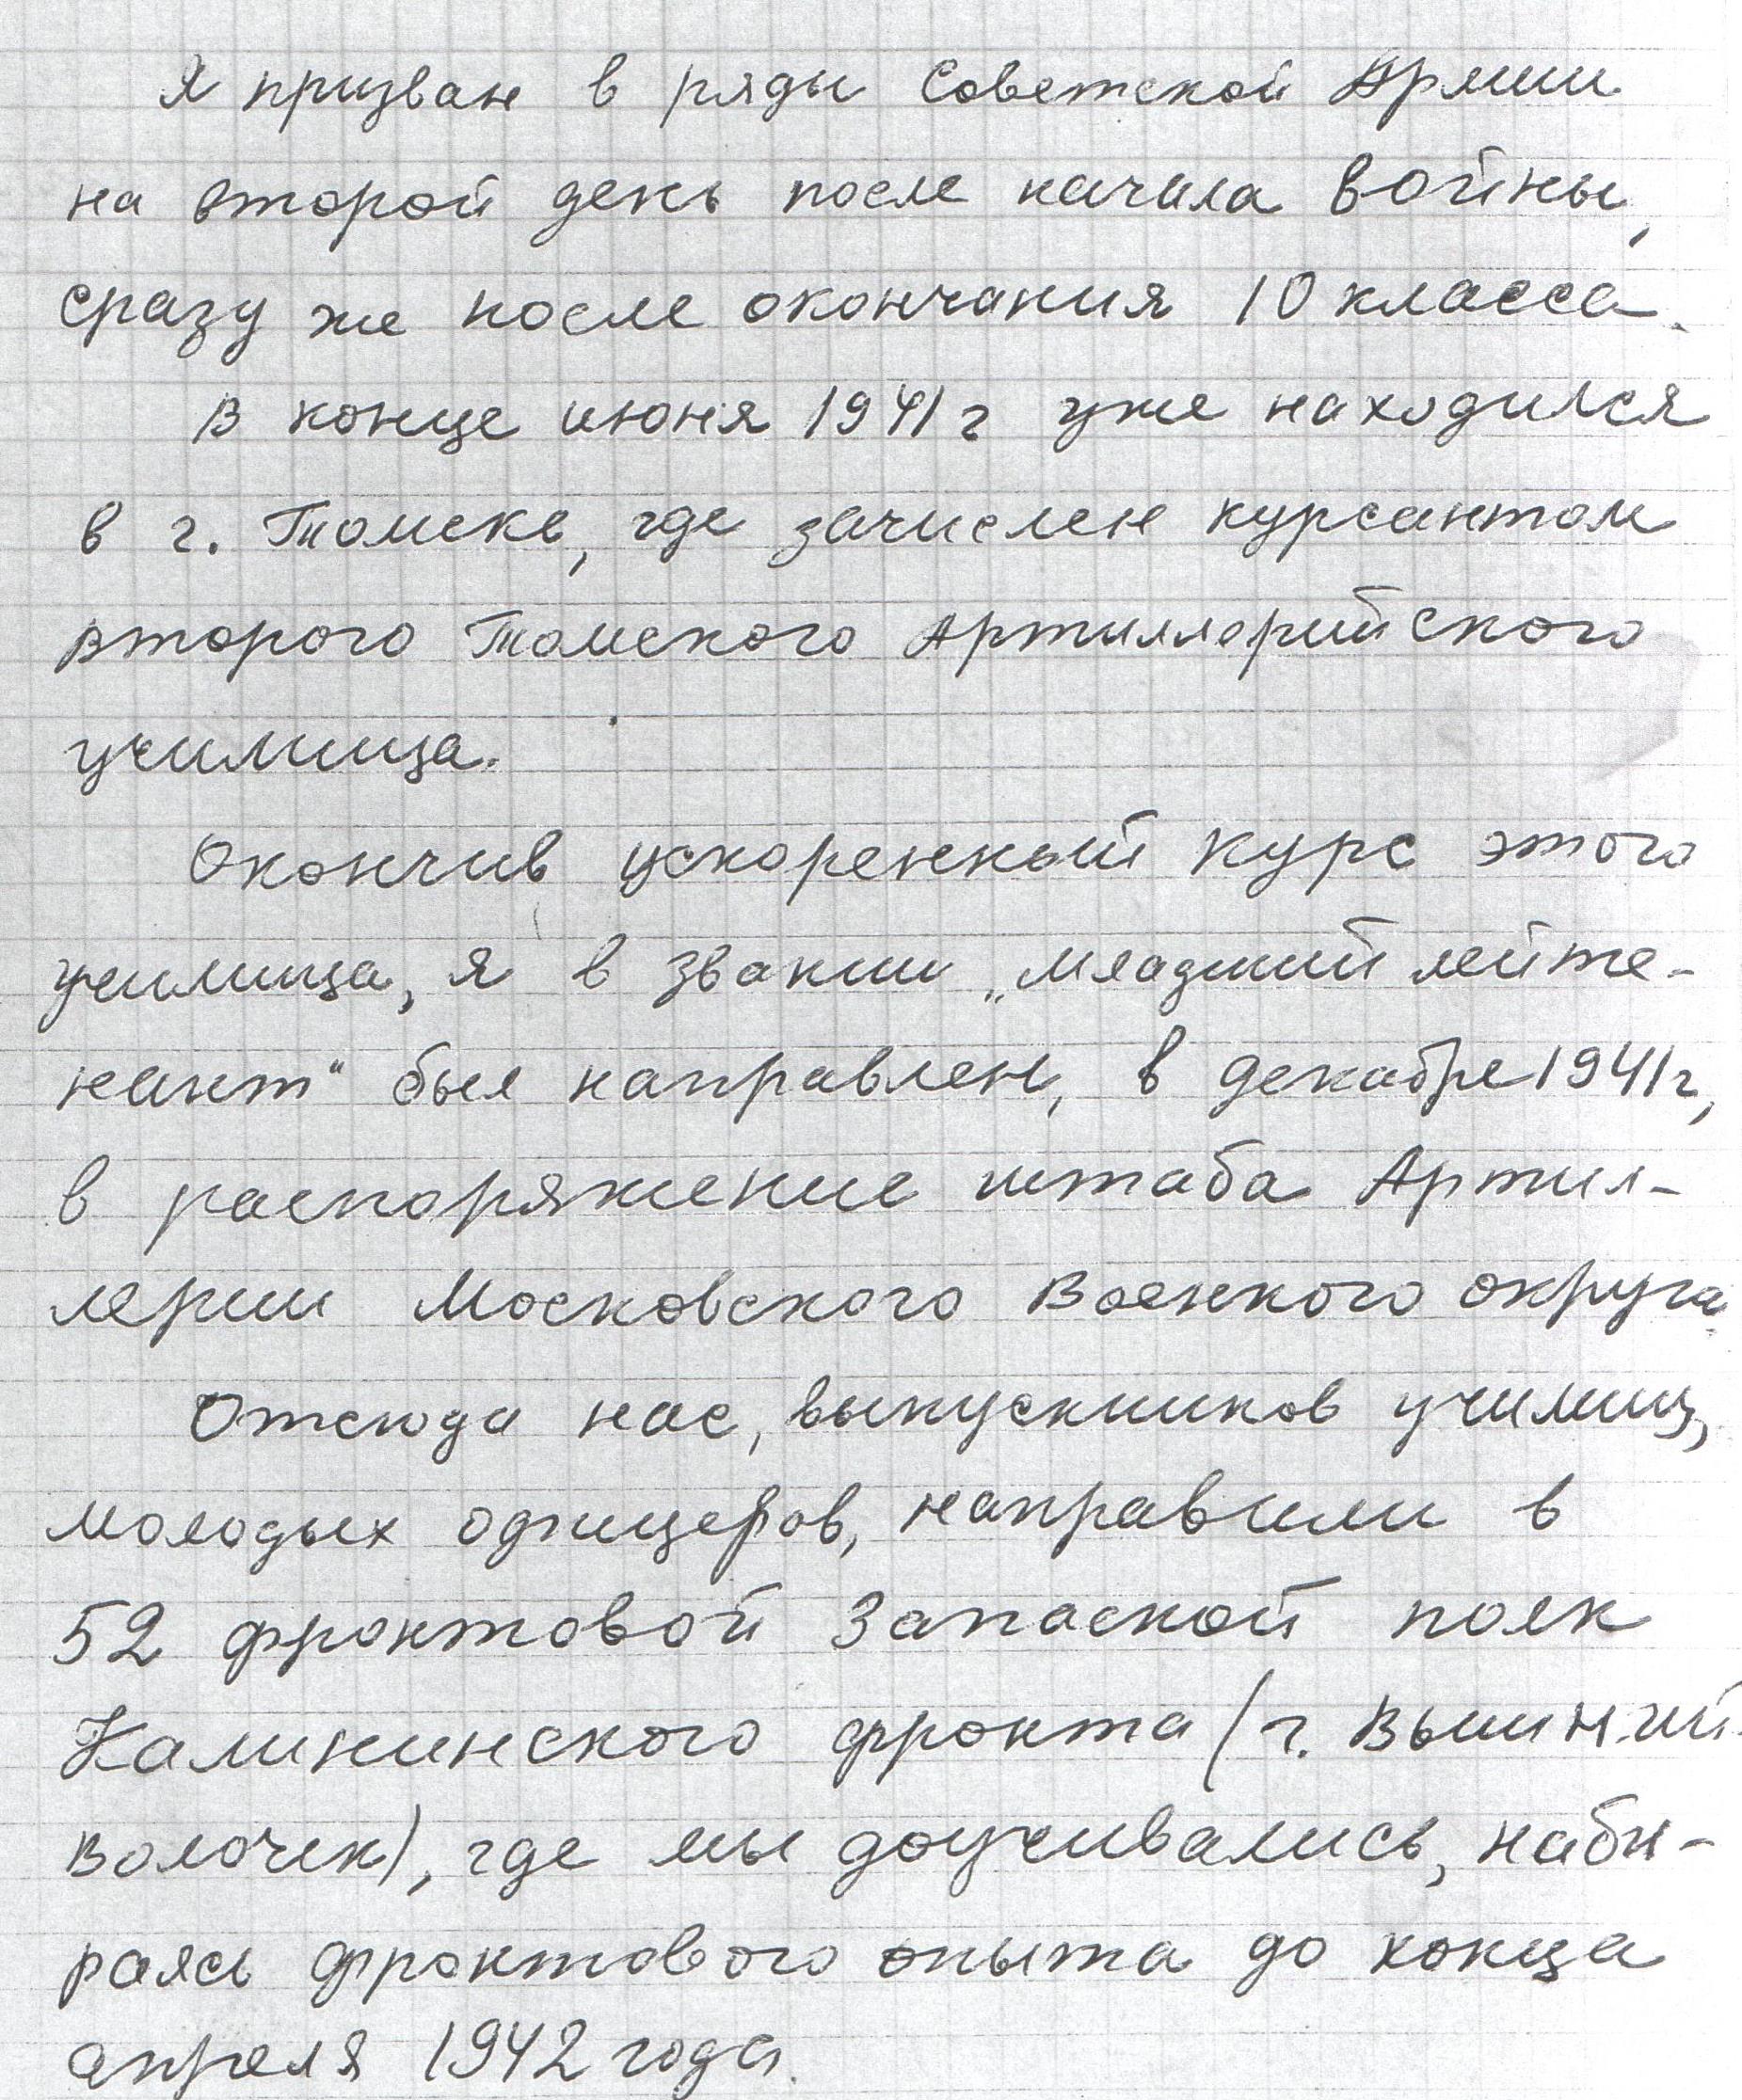 Я призван в ряды Советской Армии
на второй день после начала войны,
сразу же после окончания 10 класса.
В конце июня 1941 г уже находился
в г. Томске, где зачислен курсантом
второго Томского Артиллерийского
училища.
Окончив ускоренный курс этого
училища, я в звании „младший лейте-
нант" был направлен, в декабре 1941 г,
в распоряжение штаба Артил-
лерии Московского Военного округа.
Отсюда нас, выпускников училищ,
молодых офицеров, направили в
52 фронтовой Запасной полк
Калининского фронта (г. Вышний
Волочек), где мы доучивались, наби-
раясь фронтового опыта до конца
апреля 1942 года.